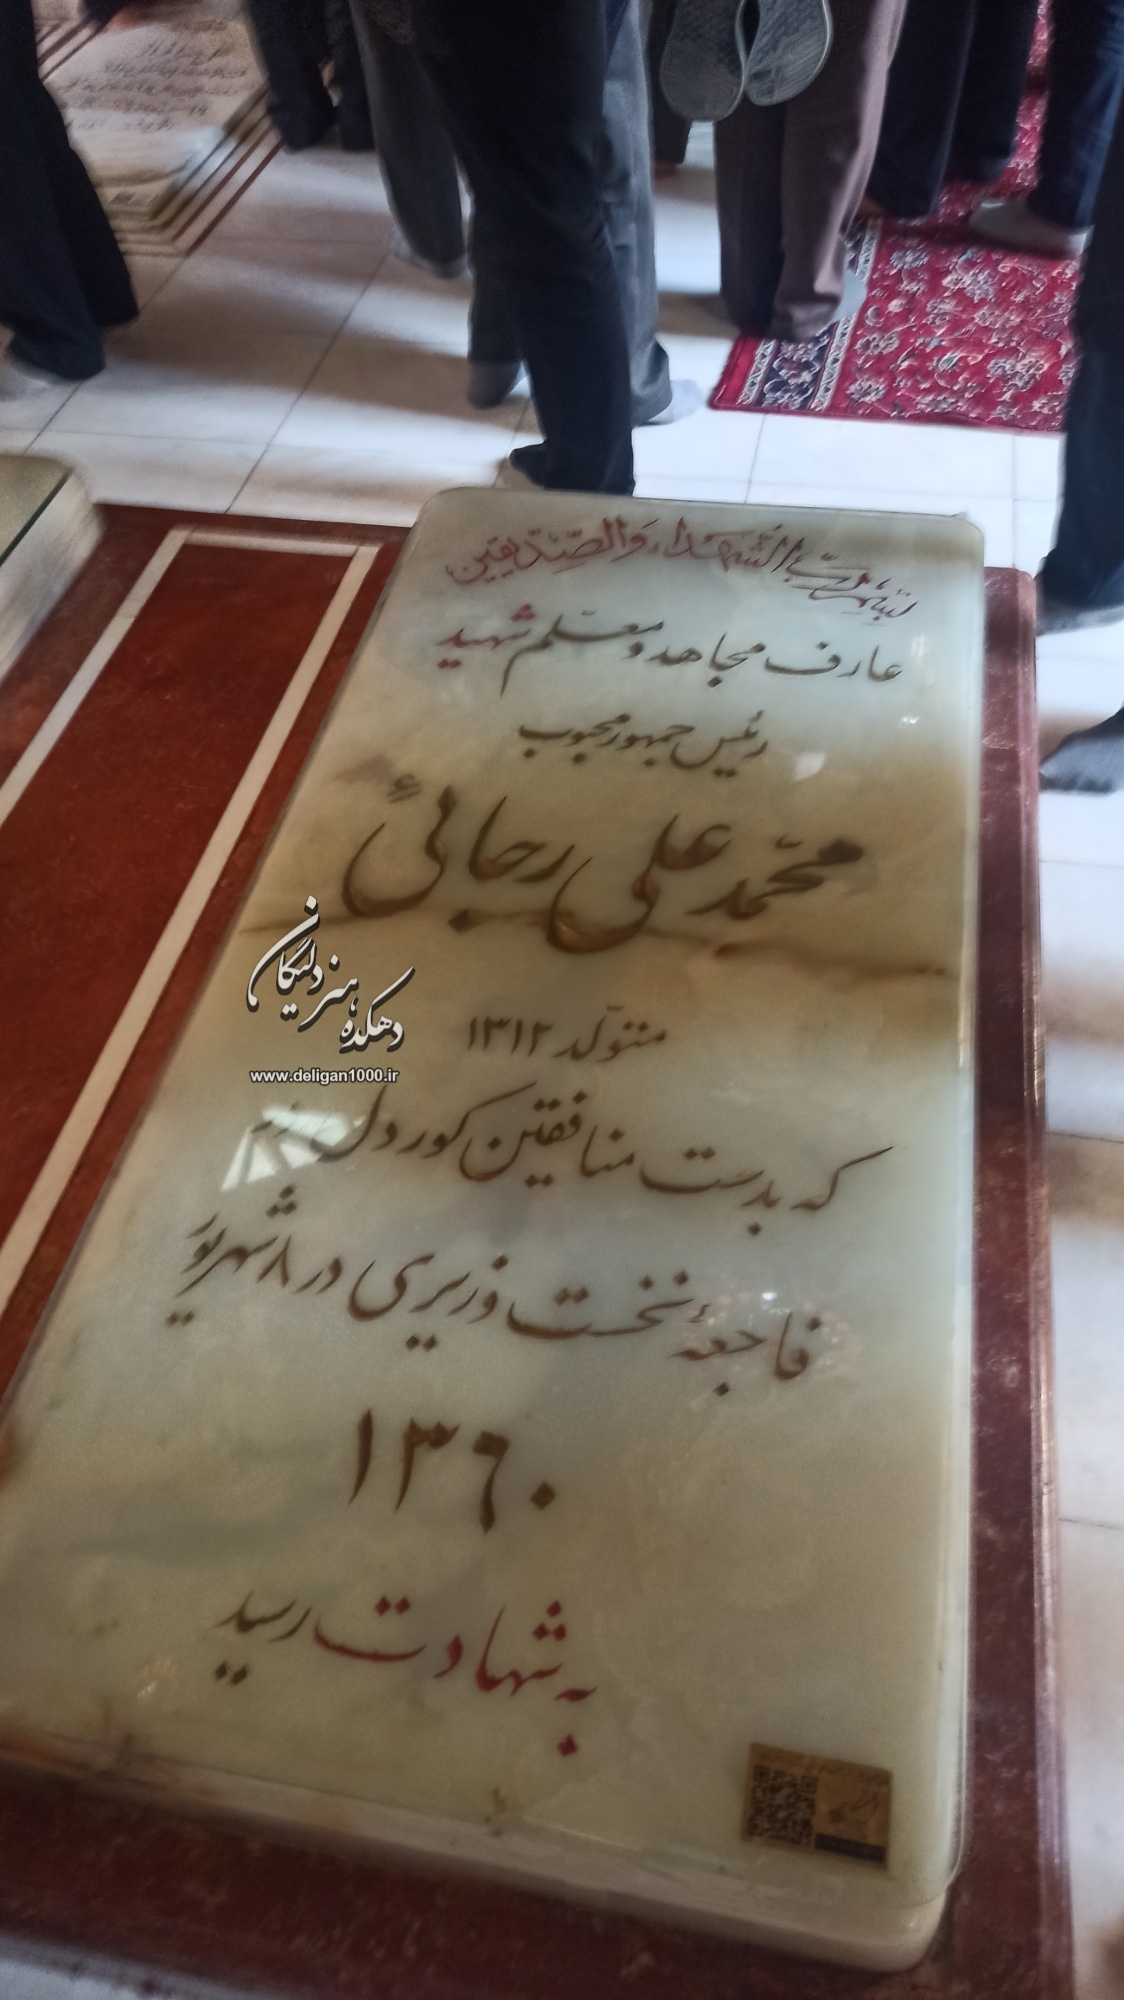 بسم رب الشهداء والصدیقین
عارف مجاهد و معلم شهید
رئیس جمهور محبوب
محمد علی رجائی
متولد ۱۳۱۲
که بدست منافقین کوردل در
فاجعهٔ نخست وزیری در ۸ شهریور
۱۳۶۰
به شهادت رسید
دهکده هنر دلیگان
www.deligan1000.ir